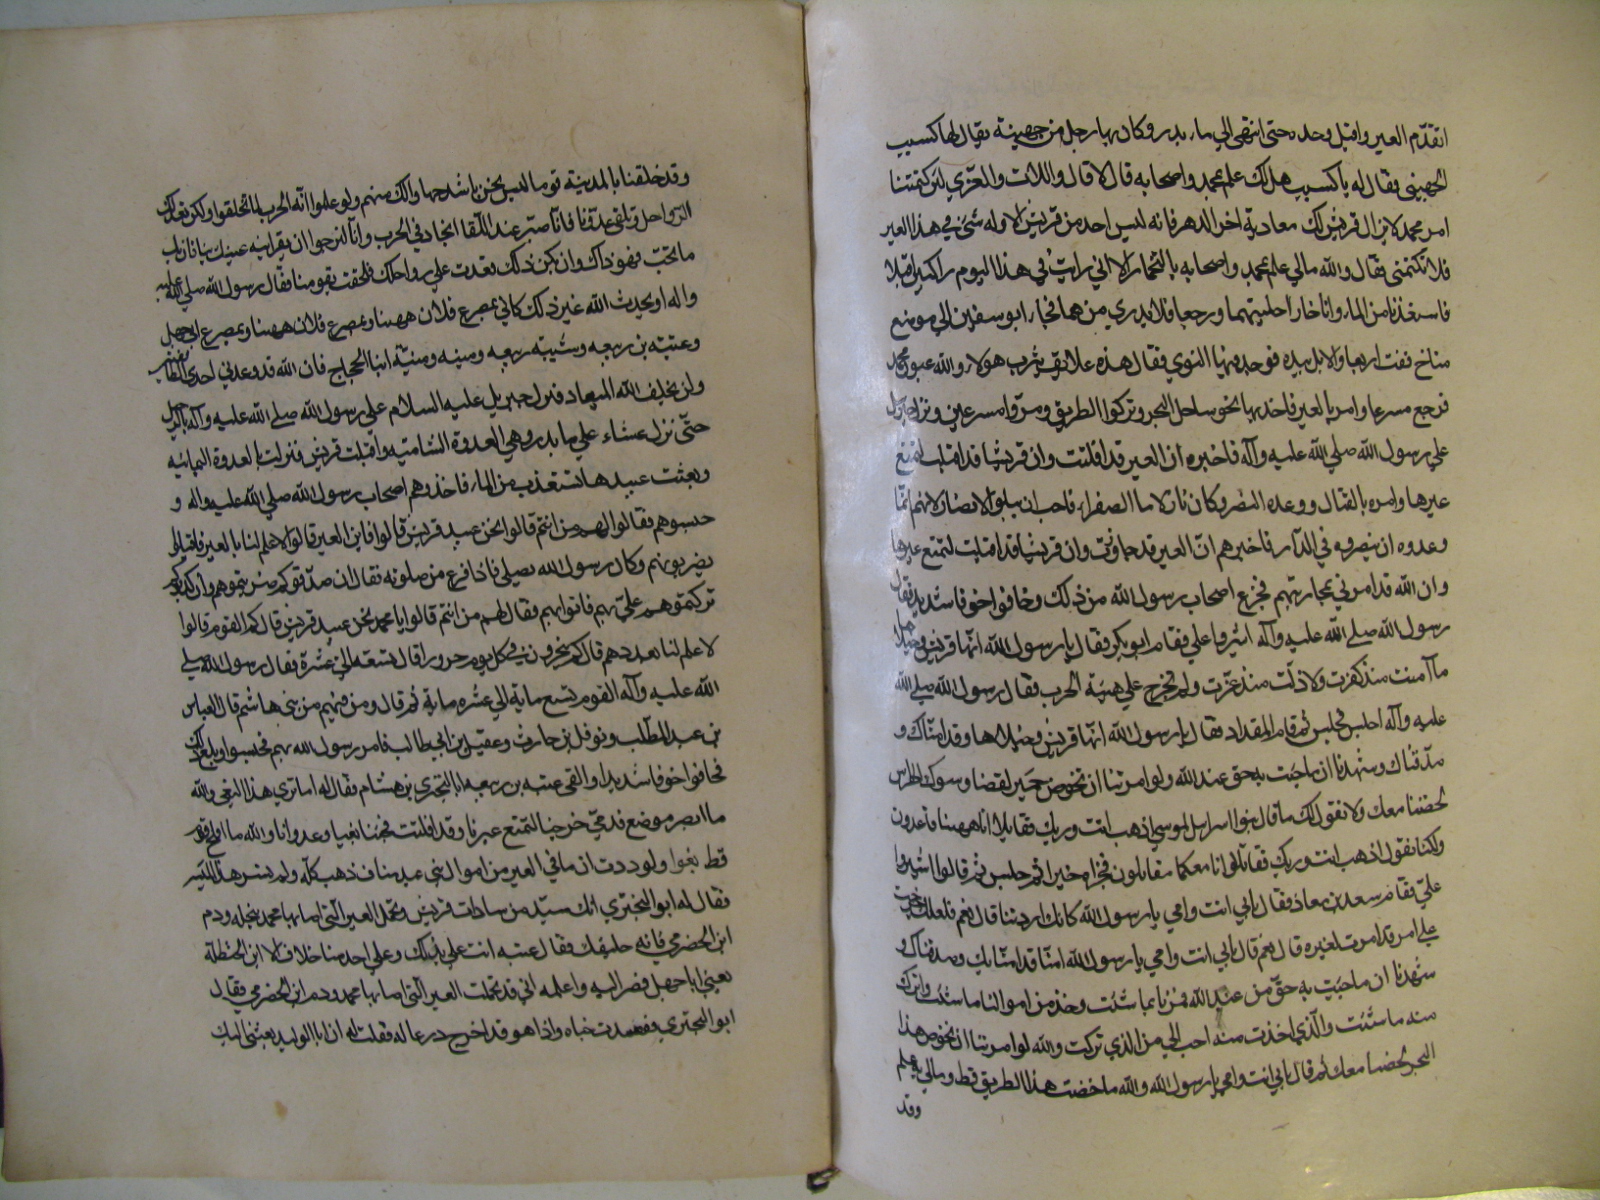 اتقدّم العير واقبل وحده حتى انتهى الي ماء بدر وكان بها رجل من جهينة يقال لها كسيب
الجهيني فقال له يا كسيب هل لك علم بمحمد واصحابه قال لا قال واللات والعزي لئن كتمتنا
امر محمد لا يزال قريش لك معادية اخر الدهر فانه ليس احد من قريش الا وله شيء في هذا العير
فلا تكتمني فقال والله مالي علم بمحمد واصحابه بالتخبار الا اني رايت في هذا اليوم راكبين اقبلا
فاستعذبا من الماء واناخا راحلتيهما ورجعا فلا ادري من هما فجاء ابو سفين الي موضع
مناخ ففت ابعار الابل بيده فوجد فيها النوي فقال هذه علائف يثرب هولاء والله عيون محمد
فرجع مسرعا وامر بالعير فاخذ بها نحو ساحل البحر وتركوا الطريق ومروا مسرعين ونزل جبرئيل
علي رسول الله صلي الله عليه وآله فاخبره ان العير قد افلتت وان قريشا قد اقبلت لتمنع
عيرها وامره بالقتال ووعده النصر وكان نازلا ما الصفراء فاحب ان يبلوا الانصار لانهم انما
وعدوه ان ينصروه في الدار فاخبرهم ان العير قد جاوزت وان قريشا قد اقبلت لتمنع عيرها
وان الله قد امرني بمحاربتهم فجزع اصحاب رسول الله من ذلك وخافوا خوفا شديدا فقال
رسول الله صلي الله عليه وآله اشيروا علي فقام ابو بكر فقال يا رسول الله انها قريش وخيلاها
ما آمنت منذ كفرت ولا ذلت منذ عزت ولم تخرج علي هيئة الحرب فقال رسول الله صلي الله
عليه وآله اجلس فجلس ثم قام المقداد فقال يا رسول الله انها قريش وخيلاها وقد امناك و
صدقناك وشهدنا ان ما جئت به حق عند الله ولو امرتنا ان نخوض جمر الغضا وشوك الهراس
لخضنا معك ولا نقول لك ما قال بنوا اسرايل لموسي اذهب انت وربك فقاتلا انا ههنا قاعدون
ولكنا نقول اذهب انت وربك فقاتلا انا معكما مقاتلون فجزاه خيرا ثم جلس ثم قالوا اشيروا
علي فقام سعد بن معاذ فقال بابي انت وامي يا رسول الله كانك اردتنا قال نعم فلعلك خرجت
علي امر قد امرت بغيره قال نعم قال بابي انت وامي يا رسول الله انا قد امنا بك وصدقناك و
شهدنا ان ما جئت به حق من عند الله فمرنا بما شئت وخذ من اموالنا ما شئت واترك
منه ما شئت والذي اخذت منه احب الي من الذي تركت والله لو امرتنا ان نخوض هذا
البحر لخضنا معك ثم قال بابي انت وامي يا رسول الله والله ما خضت هذا الطريق قط ومالي به علم
وقد
وقد خلفنا بالمدينة قوما ليس نحن باشد جهادا لك منهم ولو علموا انه الحرب لما تخلفوا ولكن نعد لك
الرواحل ونلقي عدونا فانا صبر عند اللقا انجاد في الحرب وانا لنرجوا ان يقر الله عينك بنا فان يك
ما تحب فهو ذاك وان يكن غير ذلك قعدت علي رواحلك فلحقت بقومنا فقال رسول الله صلي الله عليه
واله او يحدث الله غير ذلك كاني بمصرع فلان ههنا وبمصرع فلان ههنا وبمصرع ابي جهل
وعتبة بن ربيعه وشيبه ربيعه ومنبه ونبيه ابنا الحجاج فان الله قد وعدني احدي الطائفتين
ولن يخلف الله الميعاد فنزل جبريل عليه السلام علي رسول الله صلي الله عليه وآله بالرحيل
حتى نزل عشاء علي ما بدر وهي العدوة الشامية واقبلت قريش فنزلت بالعدوة اليمانية
وبعثت عبيدها تستعذب من الماء فاخذوهم اصحاب رسول الله صلي الله عليه واله و
حبسوهم فقالوا لهم من انتم قالوا نحن عبيد قريش قالوا فاين العير قالوا لا علم لنا بالعير فاقبلوا
يضربونهم وكان رسول الله يصلي فاذا فرغ من صلوته فقال ان صدقوكم ضربتموهم وان كذبوكم
تركتموهم علي بهم فاتوا بهم فقال لهم من انتم قالوا يا محمد نحن عبيد قريش قال كم القوم قالوا
لا علم لنا بعددهم قال كم ينحرون في كل يوم جزورا قال تسعة الي عشرة فقال رسول الله صلي
الله عليه وآله القوم تسع ماية الي عشره ماية ثم قال ومن فيهم من بني هاشم قال العباس
بن عبد المطلب ونوفل بن حارث وعقيل بن ابي طالب فامر رسول الله بهم فحبسوا وبلغ ذلك
فخافوا خوفا شديدا والقي عتبه بن ربيعه ابا البختري بن هشام فقال له اما تري هذا البغي والله
ما ابصر موضع قدمي خرجنا لنمنع عيرنا وقد افلتت فجئنا بغيا وعدوانا والله ما افلح قوم
قط بغوا ولوددت ان ما في العير من اموال بني عبد مناف ذهب كله ولم نسر هذا المسير
فقال له ابو البختري انك سيد من سادات قريش وتحمل العير التي اصابها محمد بنخلة ودم
ابن الحضرمي فانه حليفك فقال عتبه انت علي بذلك وما علي احد منا خلاف الا ابن الحنظلة
يعني ابا جهل فصر اليه واعلمه اني قد تحملت العير التي اصابها محمد ودم ابن الحضرمي فقال
ابو البختري فقصدت خباه واذا هو قد اخرج درعا له فقلت له ان ابا الوليد بعثني اليك